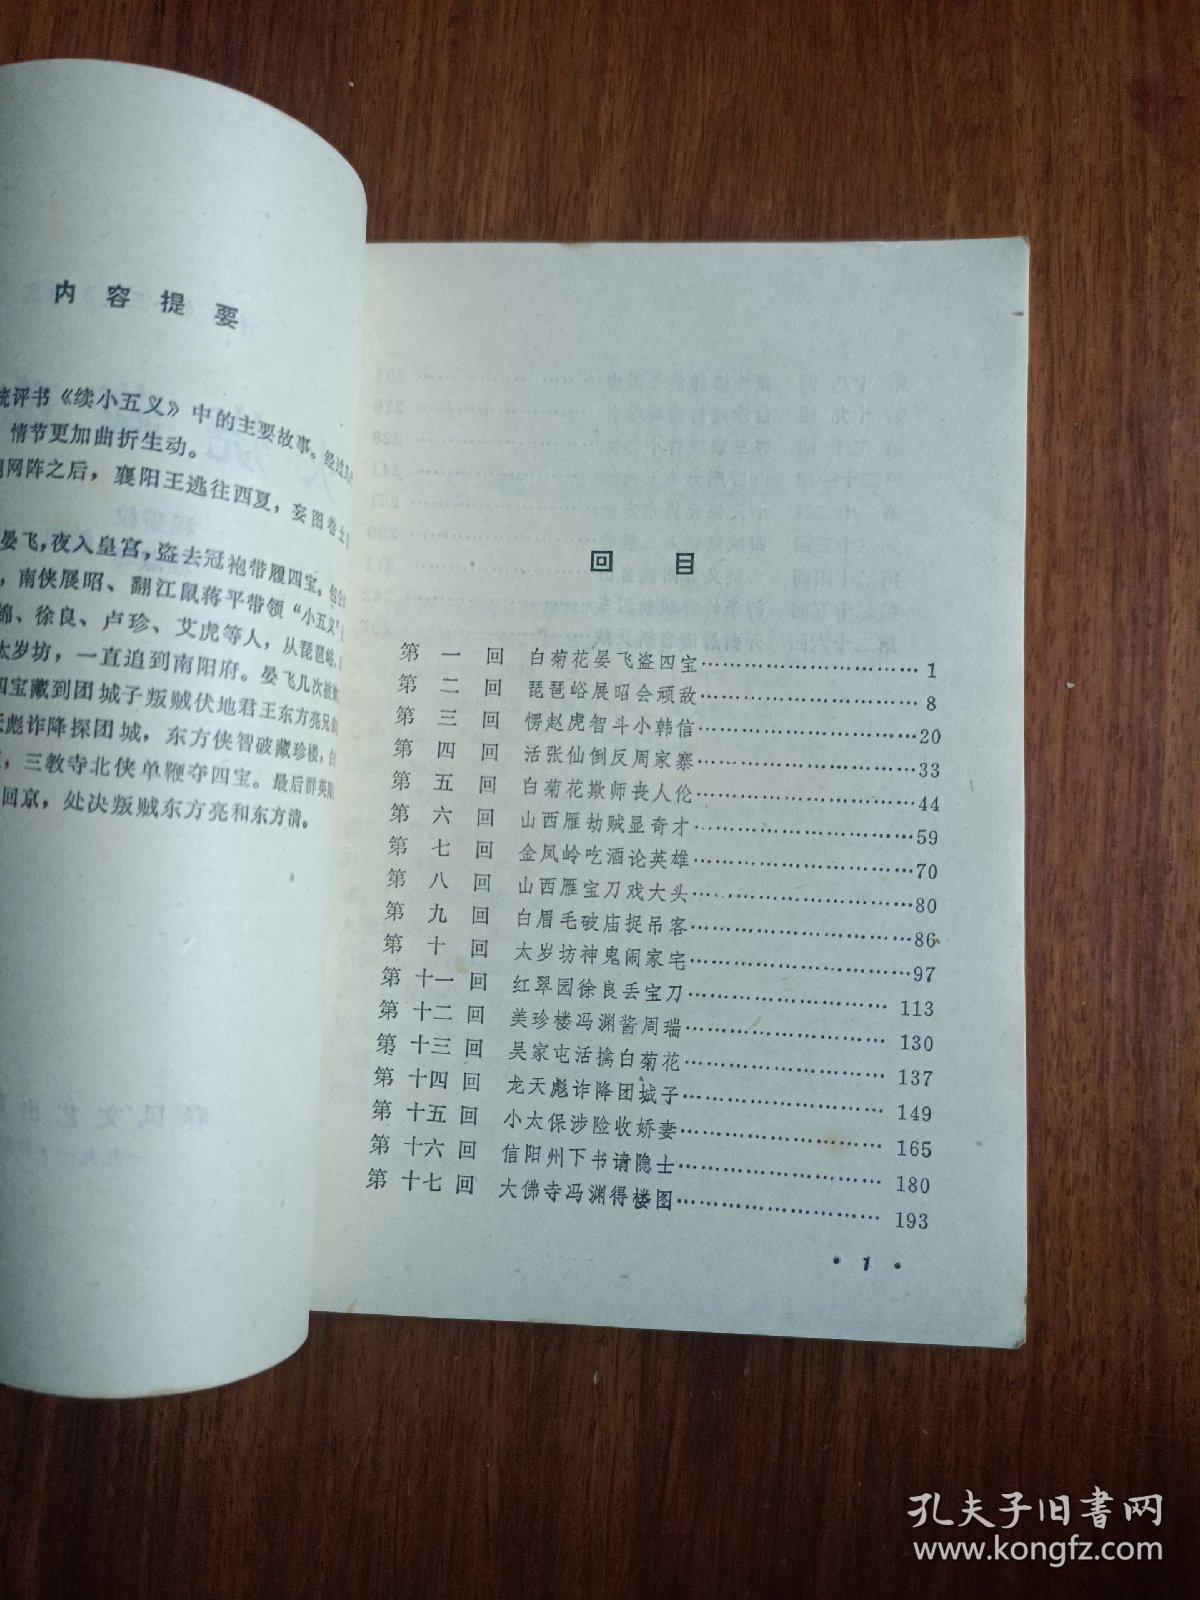 内容提要
统评书《续小五义》中的主要故事。经过
情节更加曲折生动。
网阵之后，襄阳王逃往西夏，妄图卷土
晏飞，夜入皇宫，盗去冠袍带履四宝。包
，南侠展昭、翻江鼠蒋平带领“小五义”
锦、徐良、卢珍、艾虎等人，从琵琶峪、
太岁坊，一直追到南阳府。晏飞几次被
四宝藏到团城子叛贼伏地君王东方亮
天彪诈降探团城，东方侠智破藏珍楼，白
，三教寺北侠单鞭夺四宝。最后群英
回京，处决叛贼东方亮和东方清。
回目
第一回 白菊花晏飞盗四宝……1
第二回 琵琶峪展昭会顽敌……8
第三回 愣赵虎智斗小韩信……20
第四回 活张仙倒反周家寨……33
第五回 白菊花欺师丧人伦……44
第六回 山西雁劫贼显奇才……59
第七回 金凤岭吃酒论英雄……70
第八回 山西雁宝刀戏大头……80
第九回 白眉毛破庙捉吊客……86
第十回 太岁坊神鬼闹家宅……97
第十一回 红翠园徐良丢宝刀……113
第十二回 美珍楼冯渊酱周瑞……130
第十三回 吴家屯活擒白菊花……137
第十四回 龙天彪诈降团城子……149
第十五回 小太保涉险收娇妻……165
第十六回 信阳州下书请隐士……180
第十七回 大佛寺冯渊得楼图……193
• 1 •
孔夫子旧书网
www.kongfz.com